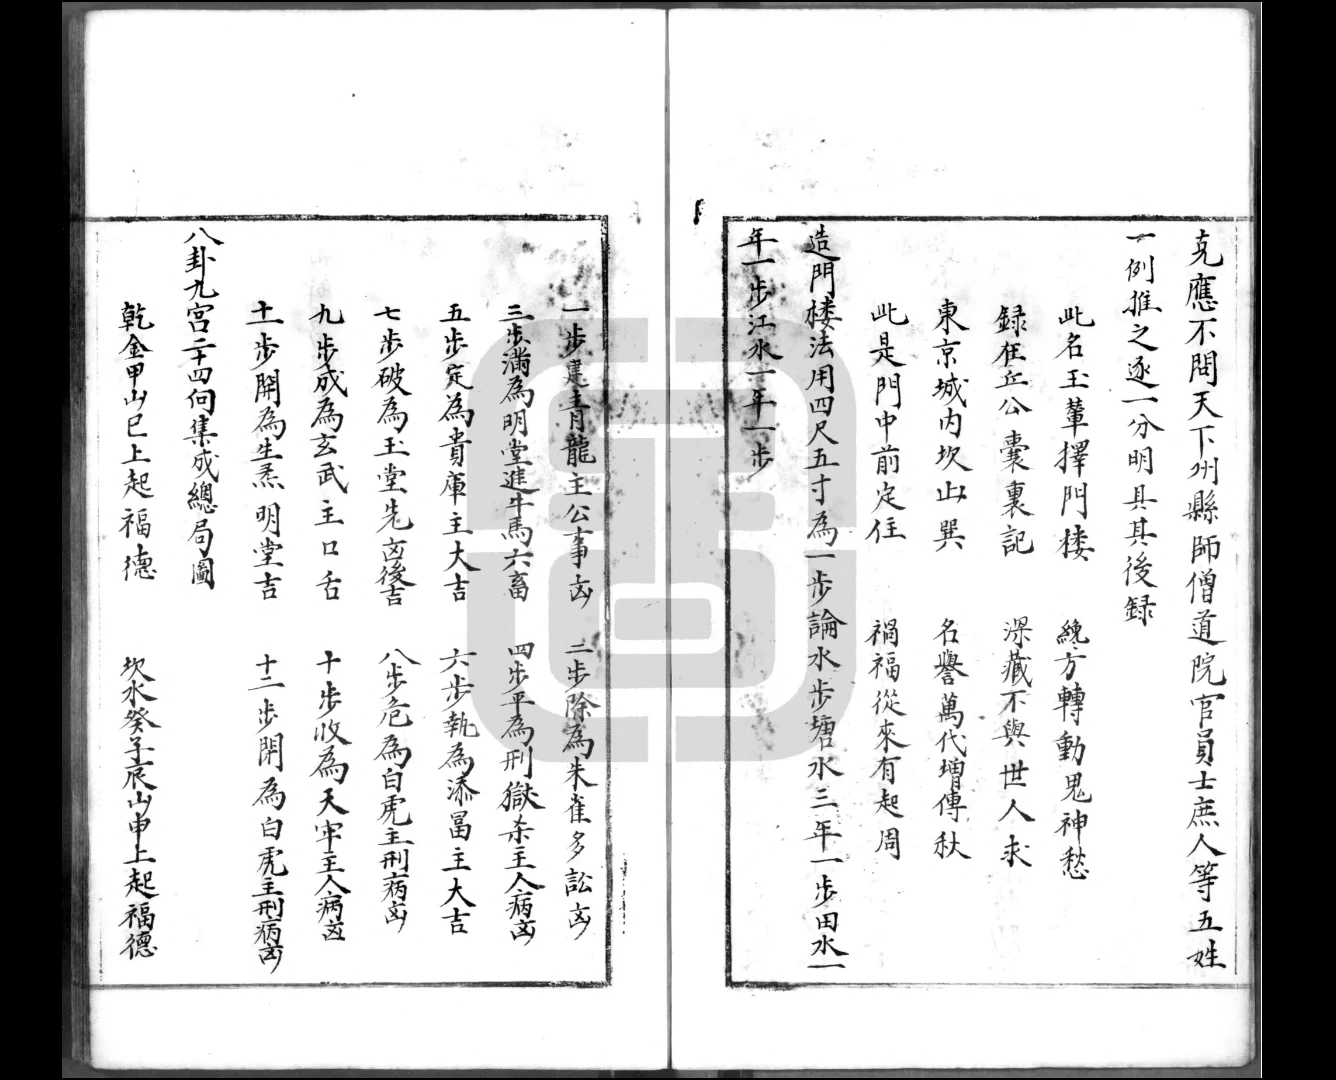 克應不問天下州縣師僧道院官員士庶人等五姓
一例推之逐一分明具其後録
此名玉輦擇門楼 纔方轉動鬼神愁
録在丘公囊裏記 深藏不與世人求
東京城内坎山巽 名譽萬代增傳秋
此是門中前定住 禍福從來有起周
造門楼法用四尺五寸為一步論水步塘水三年一步田水一
年一步江水一年一步
一步建青龍主公事凶 二步除為朱雀多訟凶
三步滿為明堂進牛馬六畜 四步平為刑獄杀主人病凶
五步定為貴庫主大吉 六步執為添畐主大吉
七步破為玉堂先凶後吉 八步危為白虎主刑病凶
九步成為玄武主口舌 十步收為天牢主人病凶
十一步開為生炁明堂吉 十二步閉為白虎主刑病凶
八卦九宫二十四向集成總局圖
乾金甲山巳上起福德 坎水癸子辰山申上起福德